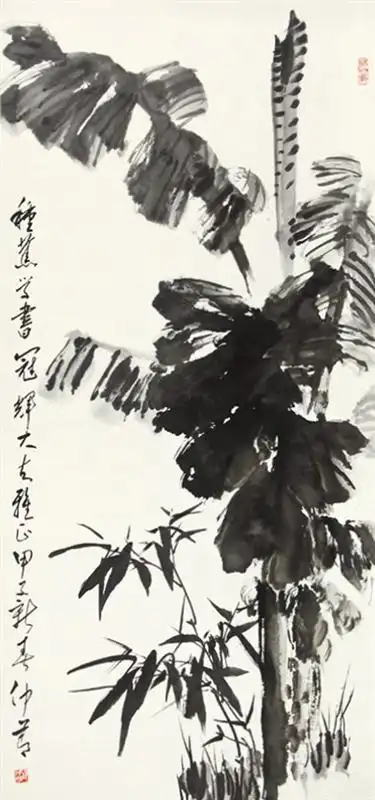 種蕉学書冠輝大夫雅正甲子新春仲